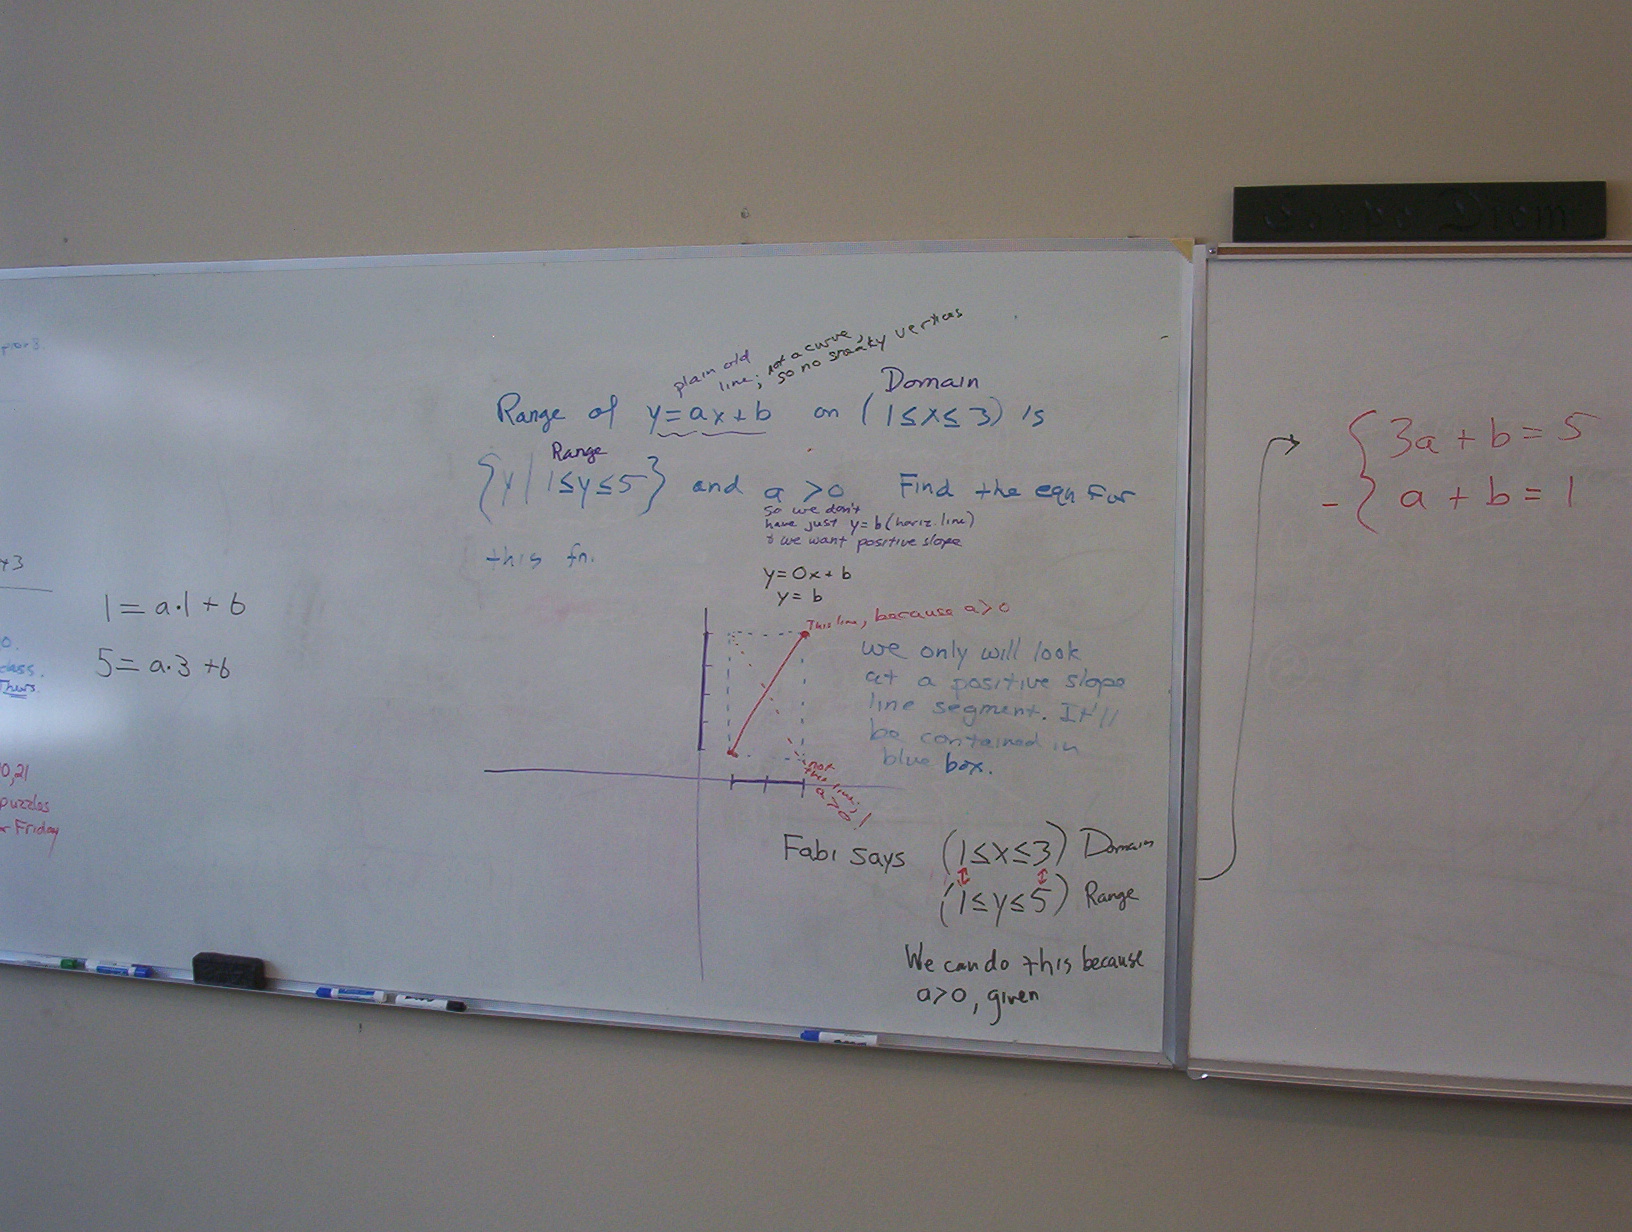 +3
0.
class.
Thurs.
0,21
puzzles
Friday
1 = a·1 + b
5 = a·3 + b
plain old
line; not a curve,
so no sneaky vertices
Domain
Range of y = ax + b on (1 ≤ x ≤ 3) is
Range
{y | 1 ≤ y ≤ 5} and a > 0. Find the eqn for
so we don't
have just y = b (horiz. line)
& we want positive slope
this fn.
y = 0x + b
y = b
This line, because a > 0
we only will look
at a positive slope
line segment. It'll
be contained in
blue box.
not
this line;
a > 0!
Fabi says (1 ≤ x ≤ 3) Domain
(1 ≤ y ≤ 5) Range
We can do this because
a > 0, given
3a + b = 5
- a + b = 1